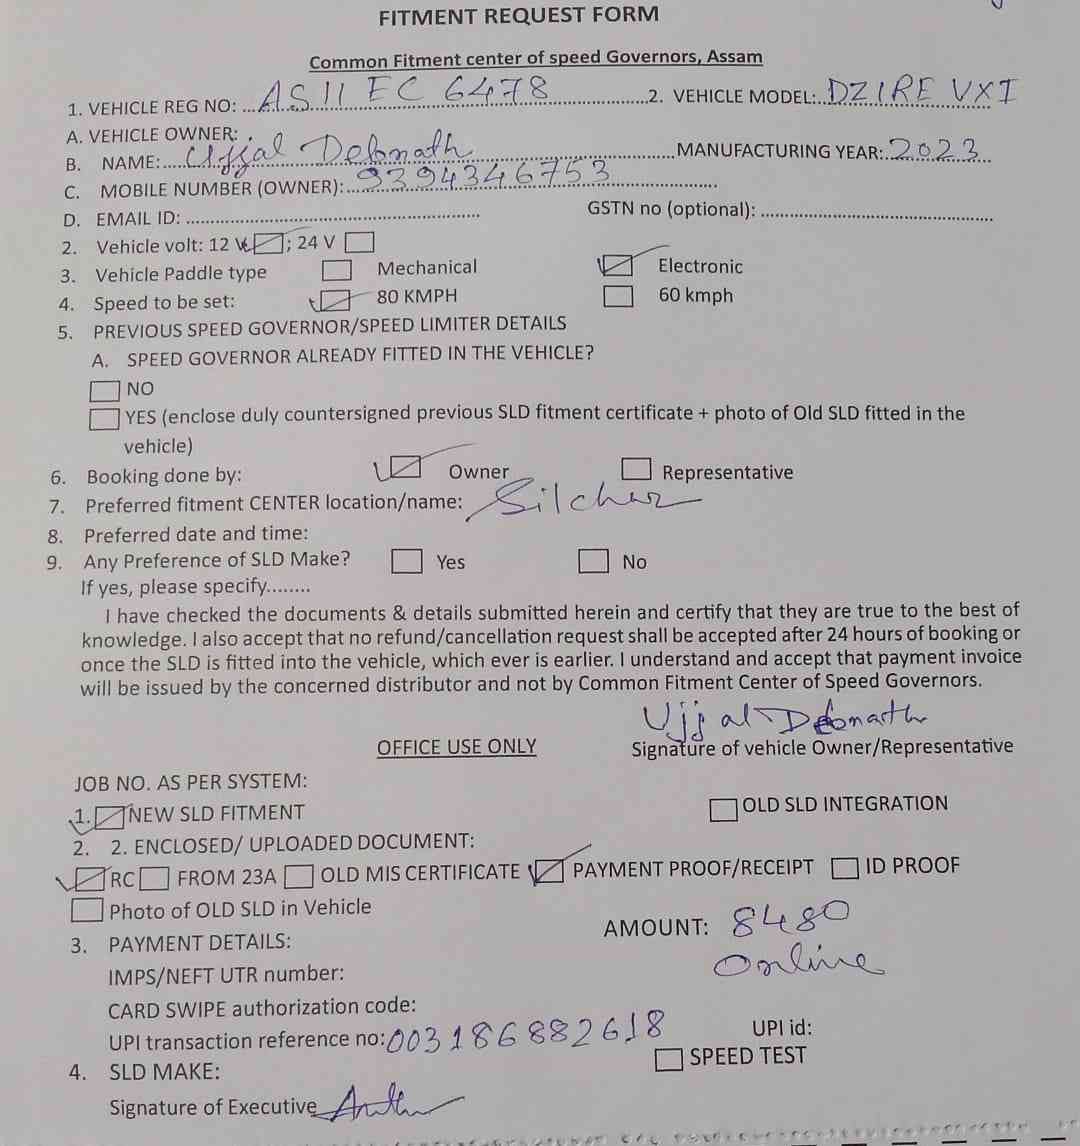 FITMENT REQUEST FORM
Common Fitment center of speed Governors, Assam
1. VEHICLE REG NO: ...AS11 EC 6478......2. VEHICLE MODEL:..DZIRE VXI
A. VEHICLE OWNER:
B. NAME:....Ujjal Debnath......MANUFACTURING YEAR:.2023..
C. MOBILE NUMBER (OWNER):...9394346753......
D. EMAIL ID: ........ GSTN no (optional): ........
2. Vehicle volt: 12 V ☑; 24 V ☐
3. Vehicle Paddle type ☐ Mechanical ☑ Electronic
4. Speed to be set: ☑ 80 KMPH ☐ 60 kmph
5. PREVIOUS SPEED GOVERNOR/SPEED LIMITER DETAILS
A. SPEED GOVERNOR ALREADY FITTED IN THE VEHICLE?
☐ NO
☐ YES (enclose duly countersigned previous SLD fitment certificate + photo of Old SLD fitted in the
vehicle)
6. Booking done by: ☑ Owner ☐ Representative
7. Preferred fitment CENTER location/name: Silchar
8. Preferred date and time:
9. Any Preference of SLD Make? ☐ Yes ☐ No
If yes, please specify........
I have checked the documents & details submitted herein and certify that they are true to the best of
knowledge. I also accept that no refund/cancellation request shall be accepted after 24 hours of booking or
once the SLD is fitted into the vehicle, which ever is earlier. I understand and accept that payment invoice
will be issued by the concerned distributor and not by Common Fitment Center of Speed Governors.
Ujjal Debnath
OFFICE USE ONLY Signature of vehicle Owner/Representative
JOB NO. AS PER SYSTEM:
1. ☑ NEW SLD FITMENT ☐ OLD SLD INTEGRATION
2. 2. ENCLOSED/ UPLOADED DOCUMENT:
☑ RC ☐ FROM 23A ☐ OLD MIS CERTIFICATE ☑ PAYMENT PROOF/RECEIPT ☐ ID PROOF
☐ Photo of OLD SLD in Vehicle
3. PAYMENT DETAILS: AMOUNT: 8480
IMPS/NEFT UTR number: Online
CARD SWIPE authorization code:
UPI transaction reference no: 003186882618 UPI id:
4. SLD MAKE: ☐ SPEED TEST
Signature of Executive